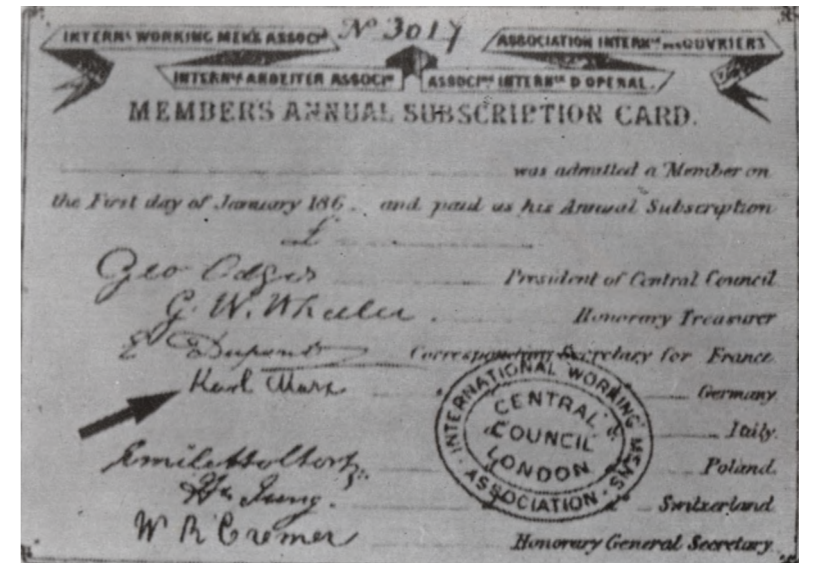 No 3017
INTERNL WORKING MEN'S ASSOCN
ASSOCIATION INTERNLE DES OUVRIERS
INTERNLE ARBEITER ASSOCIN
ASSOCINE INTERNLE D OPERAI.
MEMBERS ANNUAL SUBSCRIPTION CARD.
was admitted a Member on
the First day of January 186 and paid as his Annual Subscription
£
Geo Odger President of Central Council
G. W. Wheeler Honorary Treasurer
E Dupont Corresponding Secretary for France.
Karl Marx Germany.
Italy.
Emile Holtorp Poland.
Hn Jung. Switzerland.
W R Cremer Honorary General Secretary.
INTERNATIONAL WORKING MENS ASSOCIATION
CENTRAL
COUNCIL
LONDON